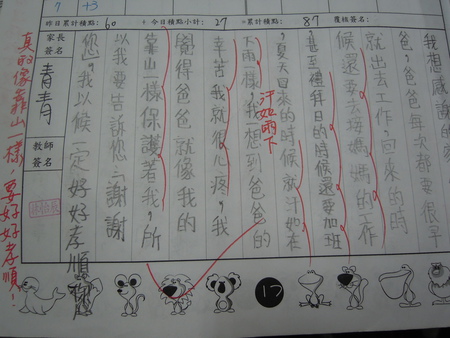 7 +3
昨日累計積點：60 +今日積點小計：27 =累計積點：87 覆核簽名：
我想感謝的
爸，爸爸每次都要很早
就出去工作，回來的時
候還要去接媽媽的工作
甚至禮拜日的時候還要加班
，夏天回來的時候就汗如在
汗如雨下
下雨一樣，我想到爸爸的
辛苦我就很心疼，我
覺得爸爸就像我的
靠山一樣保護著我，所
以我要告訴您：「謝謝
您，我以候一定好好孝順
家長簽名
青青
教師簽名
真的像靠山一樣，要好好孝順！
17